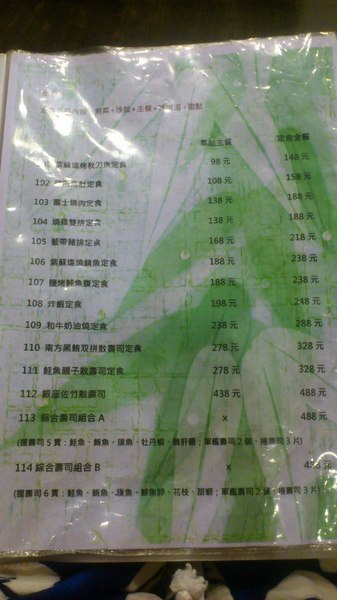 前菜+沙拉+主餐+ 湯+甜點
單點主餐 定食全餐
紫蘇塩烤秋刀魚定食 98 元 148 元
102 魚肚定食 108 元 158 元
103 富士燒肉定食 138 元 188 元
104 燒雞雙拼定食 138 元 188 元
105 藍帶豬排定食 168 元 218 元
106 紫蘇塩燒鯖魚定食 188 元 238 元
107 鹽烤鮭魚腹定食 188 元 238 元
108 炸蝦定食 198 元 248 元
109 和牛奶油燒定食 238 元 288 元
110 南方黑鮪双拼散壽司定食 278 元 328 元
111 鮭魚親子散壽司定食 278 元 328 元
112 銀座佐竹散壽司 438 元 488 元
113 綜合壽司組合 A x 488 元
(握壽司 5 貫:鮭魚、鮪魚、旗魚、牡丹蝦、鵝肝醬;軍艦壽司 2 個、捲壽司 3 片)
114 綜合壽司組合 B x 元
(握壽司 6 貫:鮭魚、鮪魚、旗魚、鯡魚卵、花枝、甜蝦;軍艦壽司 2 個、捲壽司 3 片)